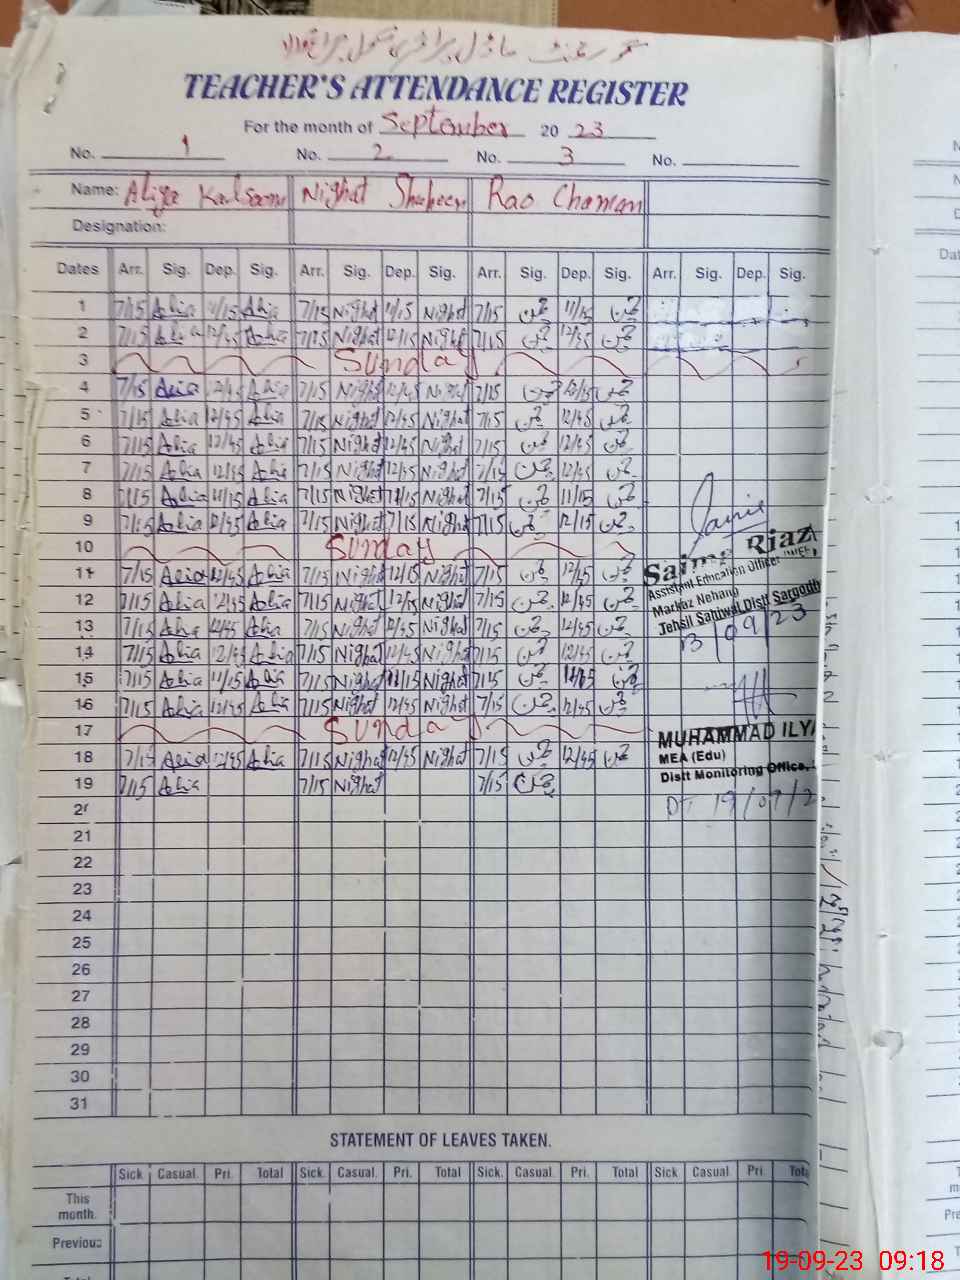 گورنمنٹ ماڈل پرائمری سکول
TEACHER'S ATTENDANCE REGISTER
For the month of September 2023
No. 1 No. 2 No. 3 No.
Name: Aliya Kalsoom Nighat Shaheen Rao Chaman
Designation:
Dates Arr. Sig. Dep. Sig. Arr. Sig. Dep. Sig. Arr. Sig. Dep. Sig. Arr. Sig. Dep. Sig.
1 7/15 Alia 11/15 Alia 7/15 Nighat 11/15 Nighat 7/15 چمن 11/15 چمن
2 7/15 Alia 12/45 Alia 7/15 Nighat 12/15 Nighat 7/15 چمن 12/45 چمن
3 Sunday
4 7/15 Alia 12/45 Alia 7/15 Nighat 12/45 Nighat 7/15 چمن 12/45 چمن
5 7/15 Alia 12/45 Alia 7/15 Nighat 12/45 Nighat 7/15 چمن 12/45 چمن
6 7/15 Alia 12/45 Alia 7/15 Nighat 12/45 Nighat 7/15 چمن 12/45 چمن
7 7/15 Alia 12/45 Alia 7/15 Nighat 12/45 Nighat 7/15 چمن 12/45 چمن
8 7/15 Alia 11/15 Alia 7/15 Nighat 11/15 Nighat 7/15 چمن 11/15 چمن
9 7/15 Alia 12/45 Alia 7/15 Nighat Nighat 7/15 چمن 12/15 چمن
10 Sunday
11 7/15 Alia 12/45 Alia 7/15 Nighat 12/15 Nighat 7/15 چمن 12/45 چمن
12 7/15 Alia 12/45 Alia 7/15 Nighat 12/15 Nighat 7/15 چمن 12/45 چمن
13 7/15 Alia 12/45 Alia 7/15 Nighat 12/45 Nighat 7/15 چمن 12/45 چمن
14 7/15 Alia 12/45 Alia 7/15 Nighat 12/45 Nighat 7/15 چمن 12/45 چمن
15 7/15 Alia 11/15 Alia 7/15 Nighat 11/15 Nighat 7/15 چمن چمن
16 7/15 Alia 12/45 Alia 7/15 Nighat 12/45 Nighat 7/15 چمن 12/45 چمن
17 Sunday
18 7/15 Alia 12/45 Alia 7/15 Nighat 12/45 Nighat 7/15 چمن 12/45 چمن
19 7/15 Alia 7/15 Nighat 7/15 چمن
Saima Riaz
Assistant Education Officer (WEE)
Markaz Nehang
Tehsil Sahiwal Distt Sargodh
13/09/23
MUHAMMAD ILYA
MEA (Edu)
Distt Monitoring Office.
DT 19/09/2
20
21
22
23
24
25
26
27
28
29
30
31
STATEMENT OF LEAVES TAKEN.
Sick Casual. Pri. Total Sick. Casual. Pri. Total Sick. Casual. Pri. Total Sick Casual Pri. Tota
This month.
Previous
Total
19-09-23 09:18